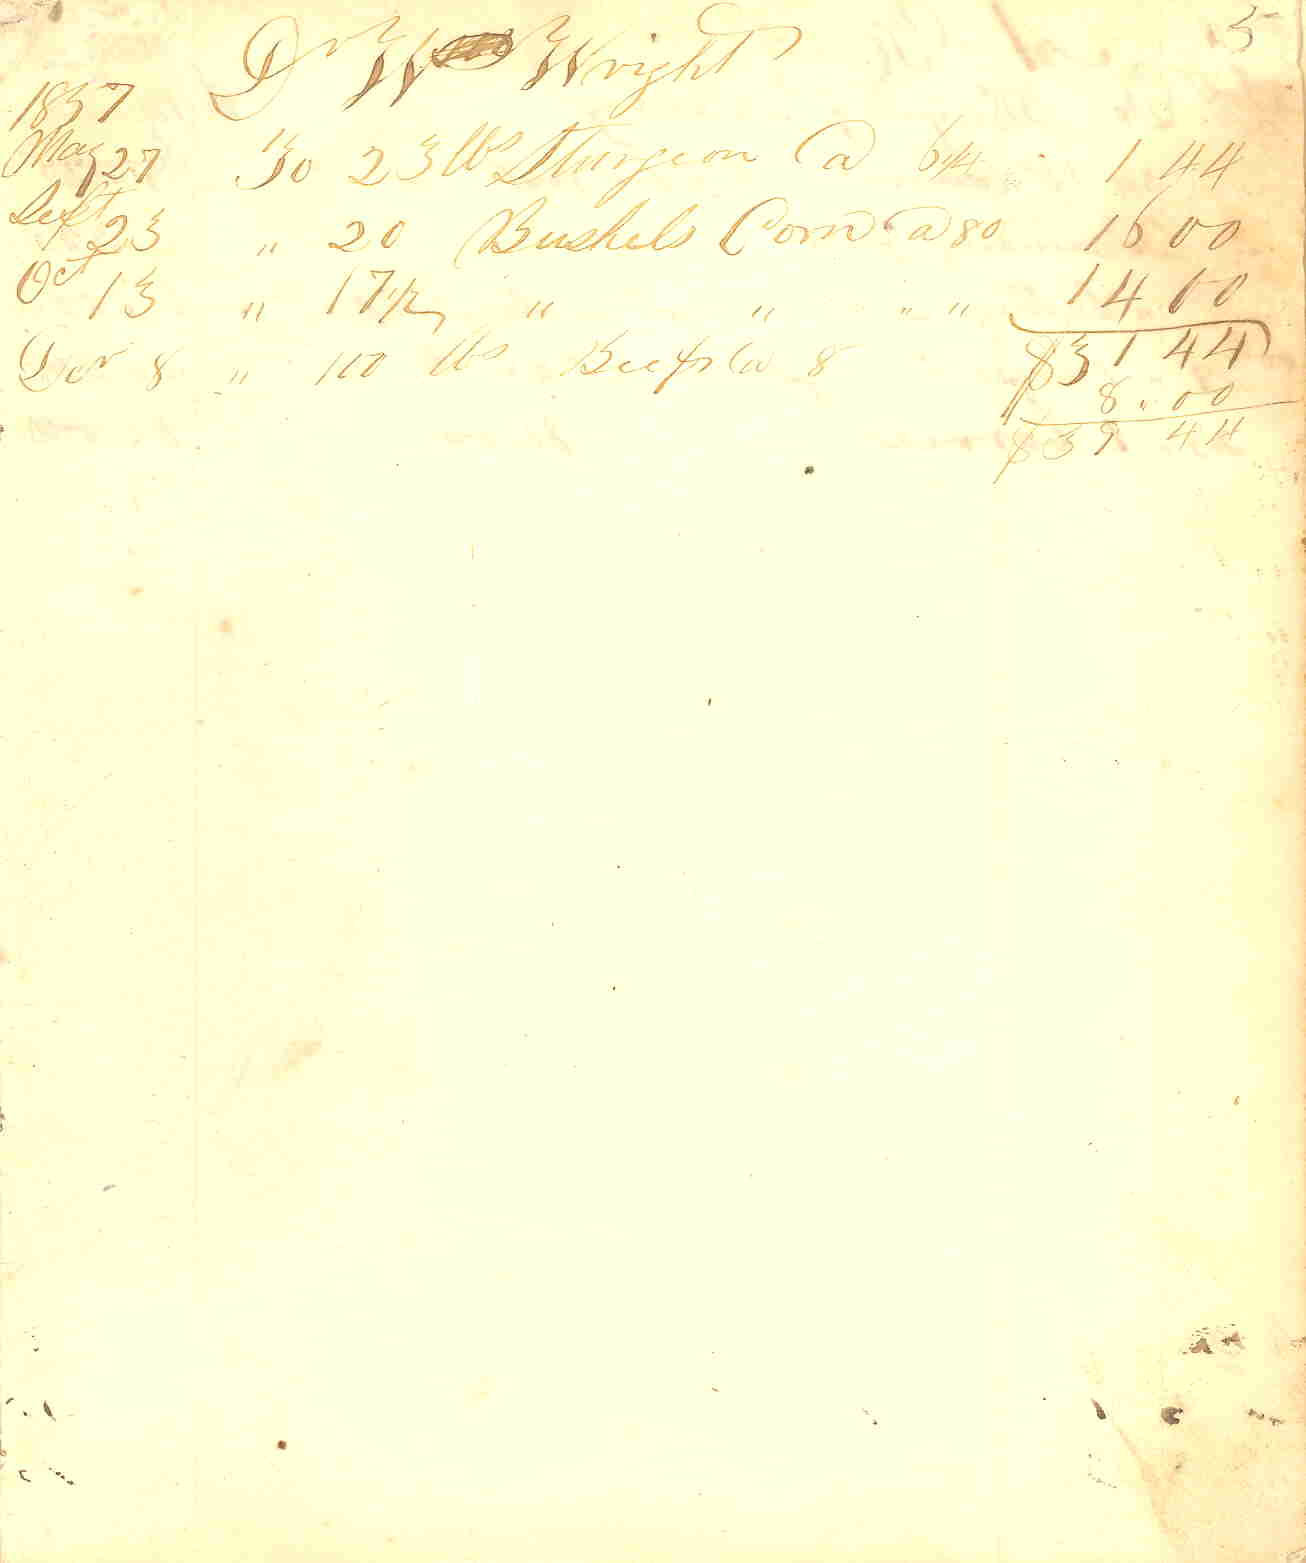 5
Dr W Wright
1857
May 27 To 23 lbs Sturgeon @ 6 1/4 1 44
Sept 23 " 20 Bushels Corn @ 80 16 00
Oct 13 " 17 1/2 " " " " 14 00
$31 44
Dec 8 " 100 lbs Beef @ 8 8 " 00
$39 44